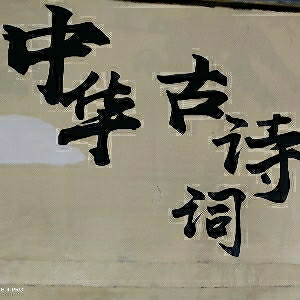 中华
古诗词